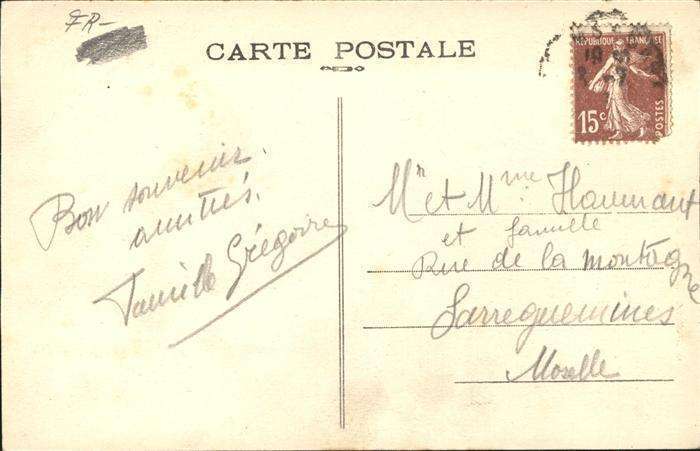 FR-
CARTE POSTALE
RÉPUBLIQUE FRANÇAISE
15c
POSTES
Bon souvenir.
amitiés.
Famille Grégoire
Mr et Mme Haumant
et famille
Rue de la montagne
Sarreguemines
Moselle